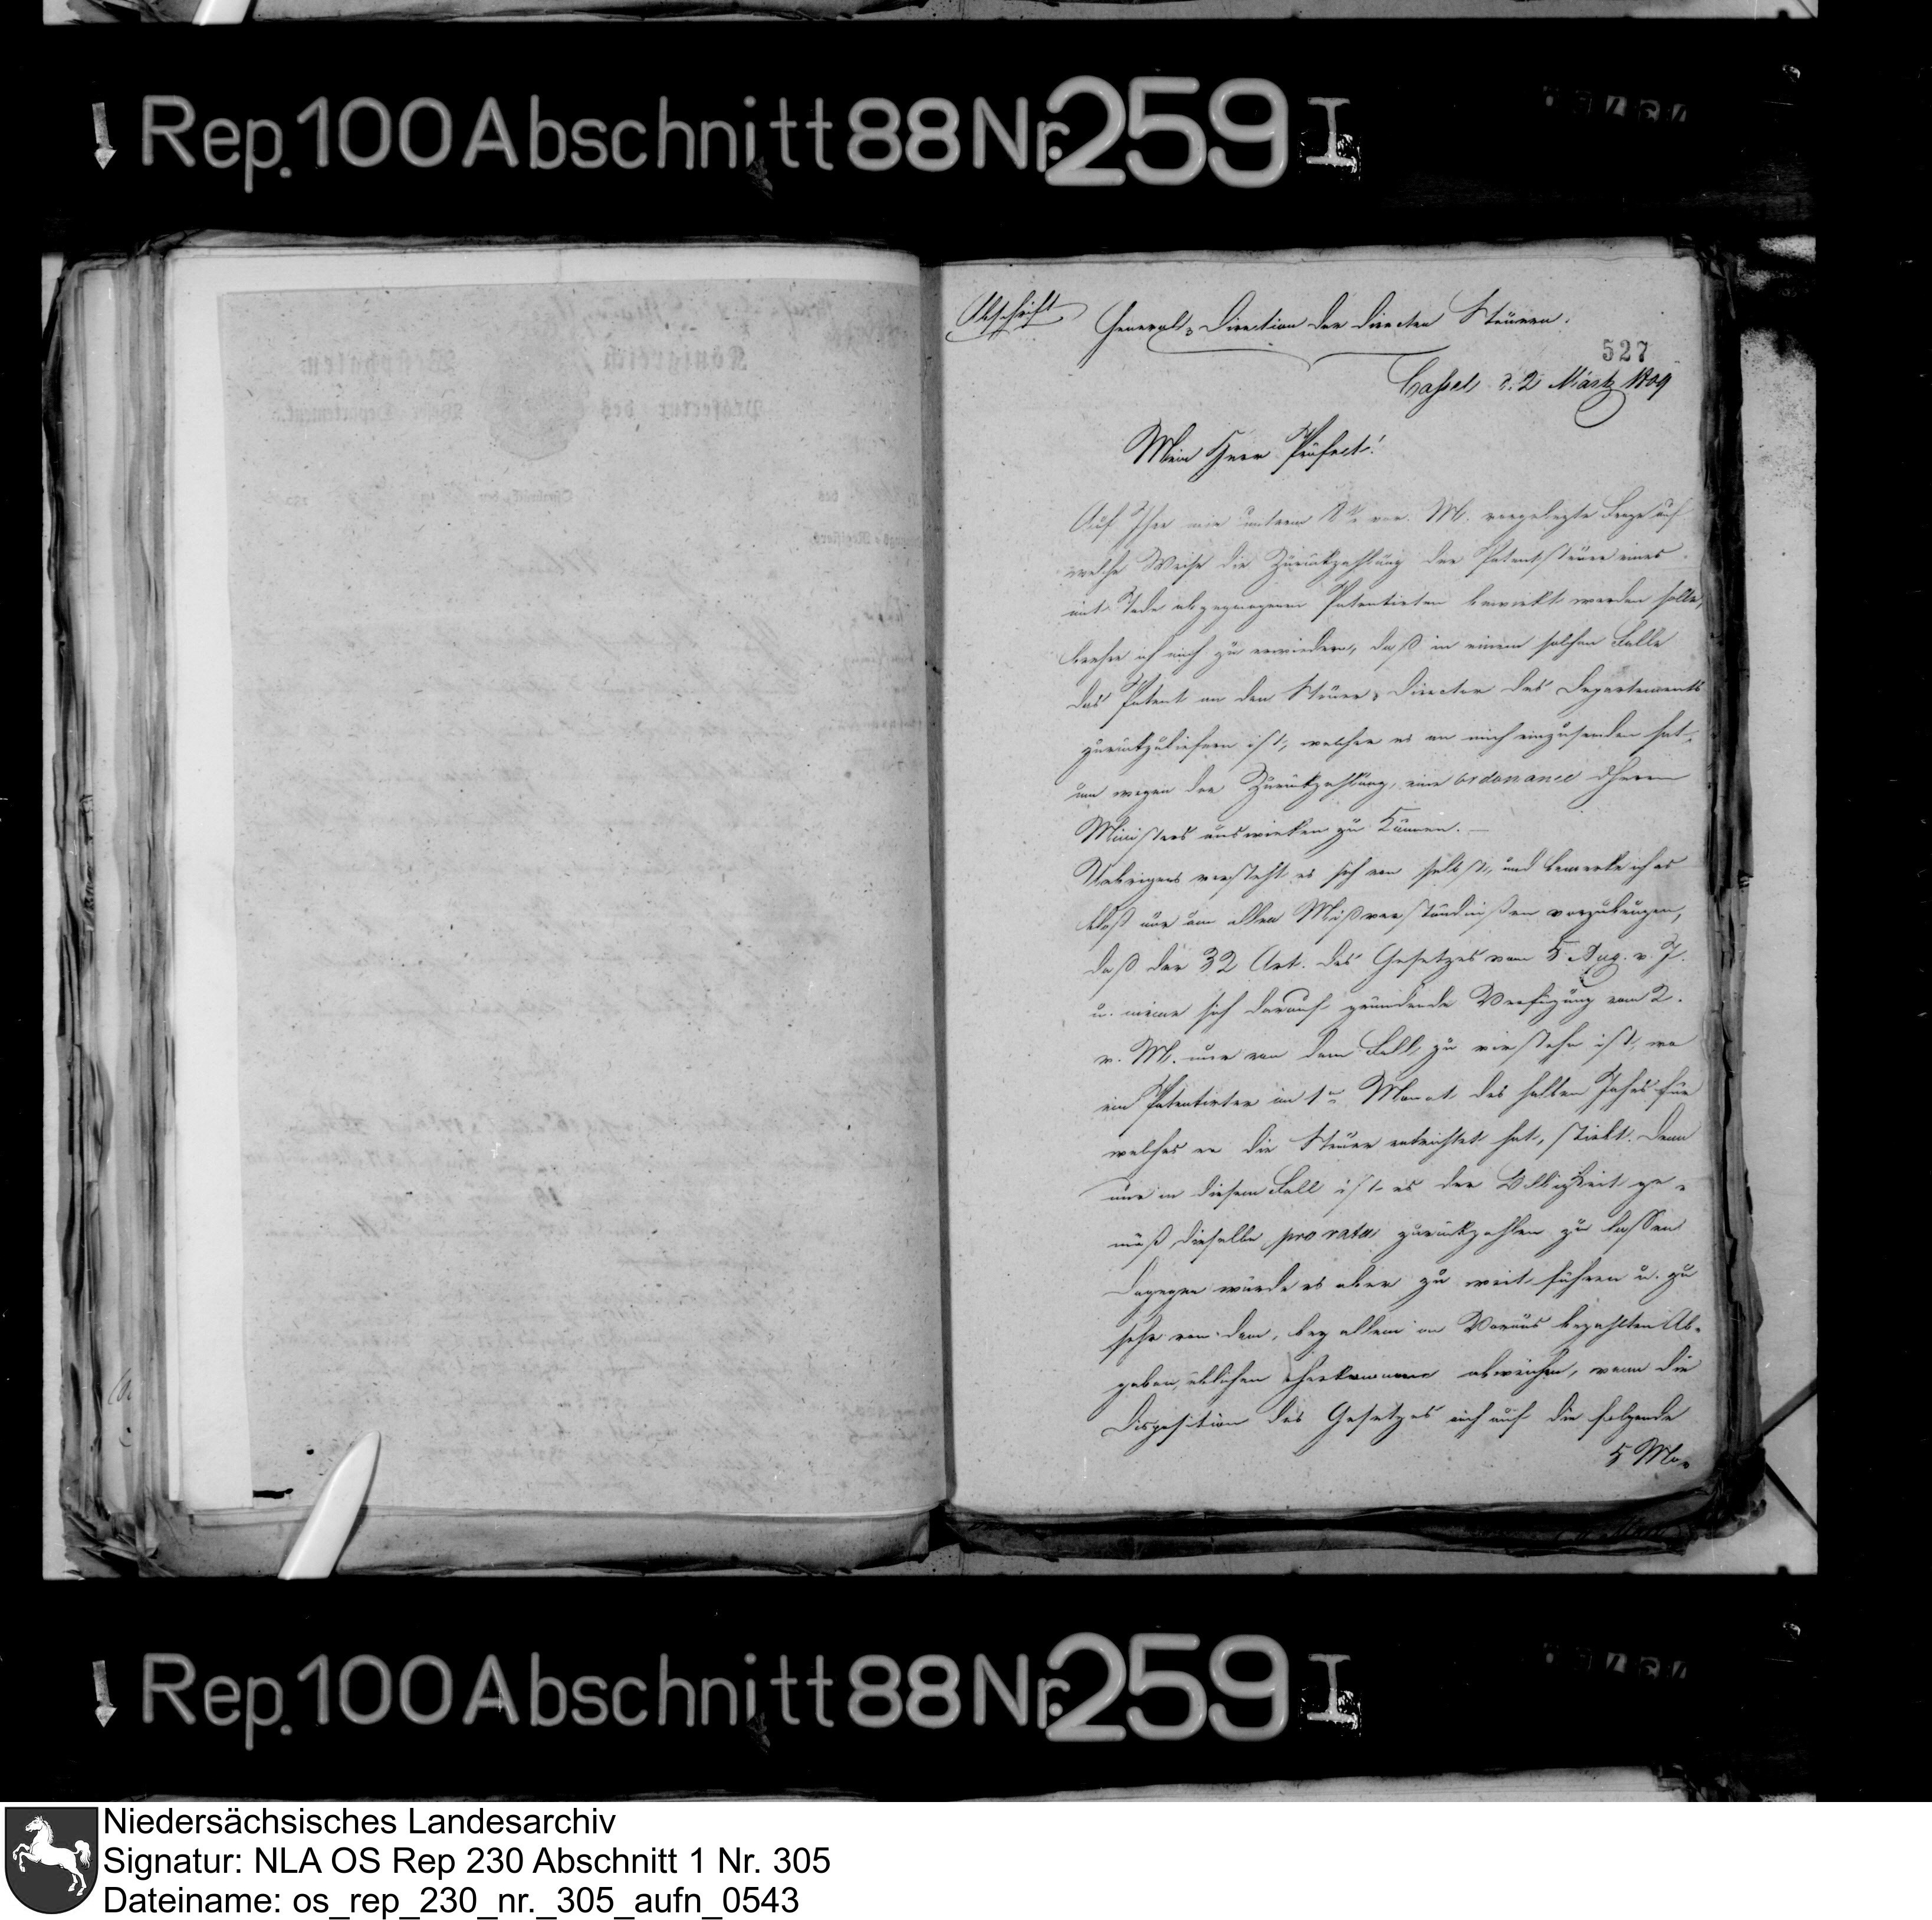 Rep. 100 Abschnitt 88 Nr. 259 I
Abschrift
General-Direction der directen Steuern.
527
Cassel d. 2 Märtz 1809
Mein Herr Präfect!
Auf Ihre mir unterm v. M. vorgelegte Frage auf
welche Weise die Zurückzahlung der Patentsteuer eines
mit Tode abgegangenen Patentirten bewirkt werden solle,
beehre ich mich zu erwiedern, daß in einem solchen Falle
das Patent an den Steuer-Director des Departements
zurückzuliefern ist, welcher es an mich einzusenden hat,
um wegen der Zurückzahlung, eine ordonance
Ministers auswirken zu können. —
Uebrigens versteht es sich von selbst, und bemerke ich es
bloß nur um allen Mißverständnißen vorzubeugen,
daß der 32 Art. des Gesetzes vom 5 Aug. v. J.
u. meine sich darauf gründende Verfügung vom 2.
v. M. nur von dem Fall zu verstehn ist, wo
ein Patentirter im 1n Monat des halben Jahres für
welches er die Steuer entrichtet hat, stirbt. Denn
nur in diesem Fall ist es der Billigkeit ge-
mäß, dieselbe pro rata zurückzahlen zu lassen
Dagegen würde es aber zu weit führen u. zu
sehr von dem, bey allen im Voraus bezahlten Ab-
gaben, üblichen Herkommen abweichen, wenn die
Disposition des Gesetzes auch auf die folgende
5 Mo-
Rep. 100 Abschnitt 88 Nr. 259 I
Niedersächsisches Landesarchiv
Signatur: NLA OS Rep 230 Abschnitt 1 Nr. 305
Dateiname: os_rep_230_nr._305_aufn_0543